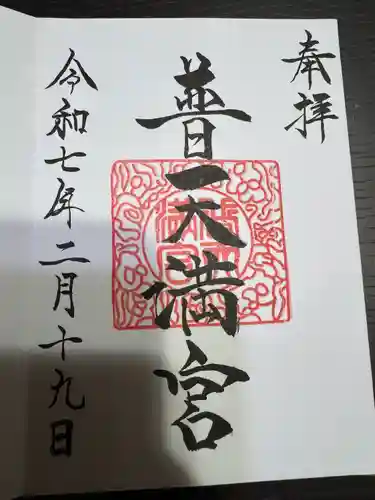 奉拝
普一天満宮
令和七年二月十九日